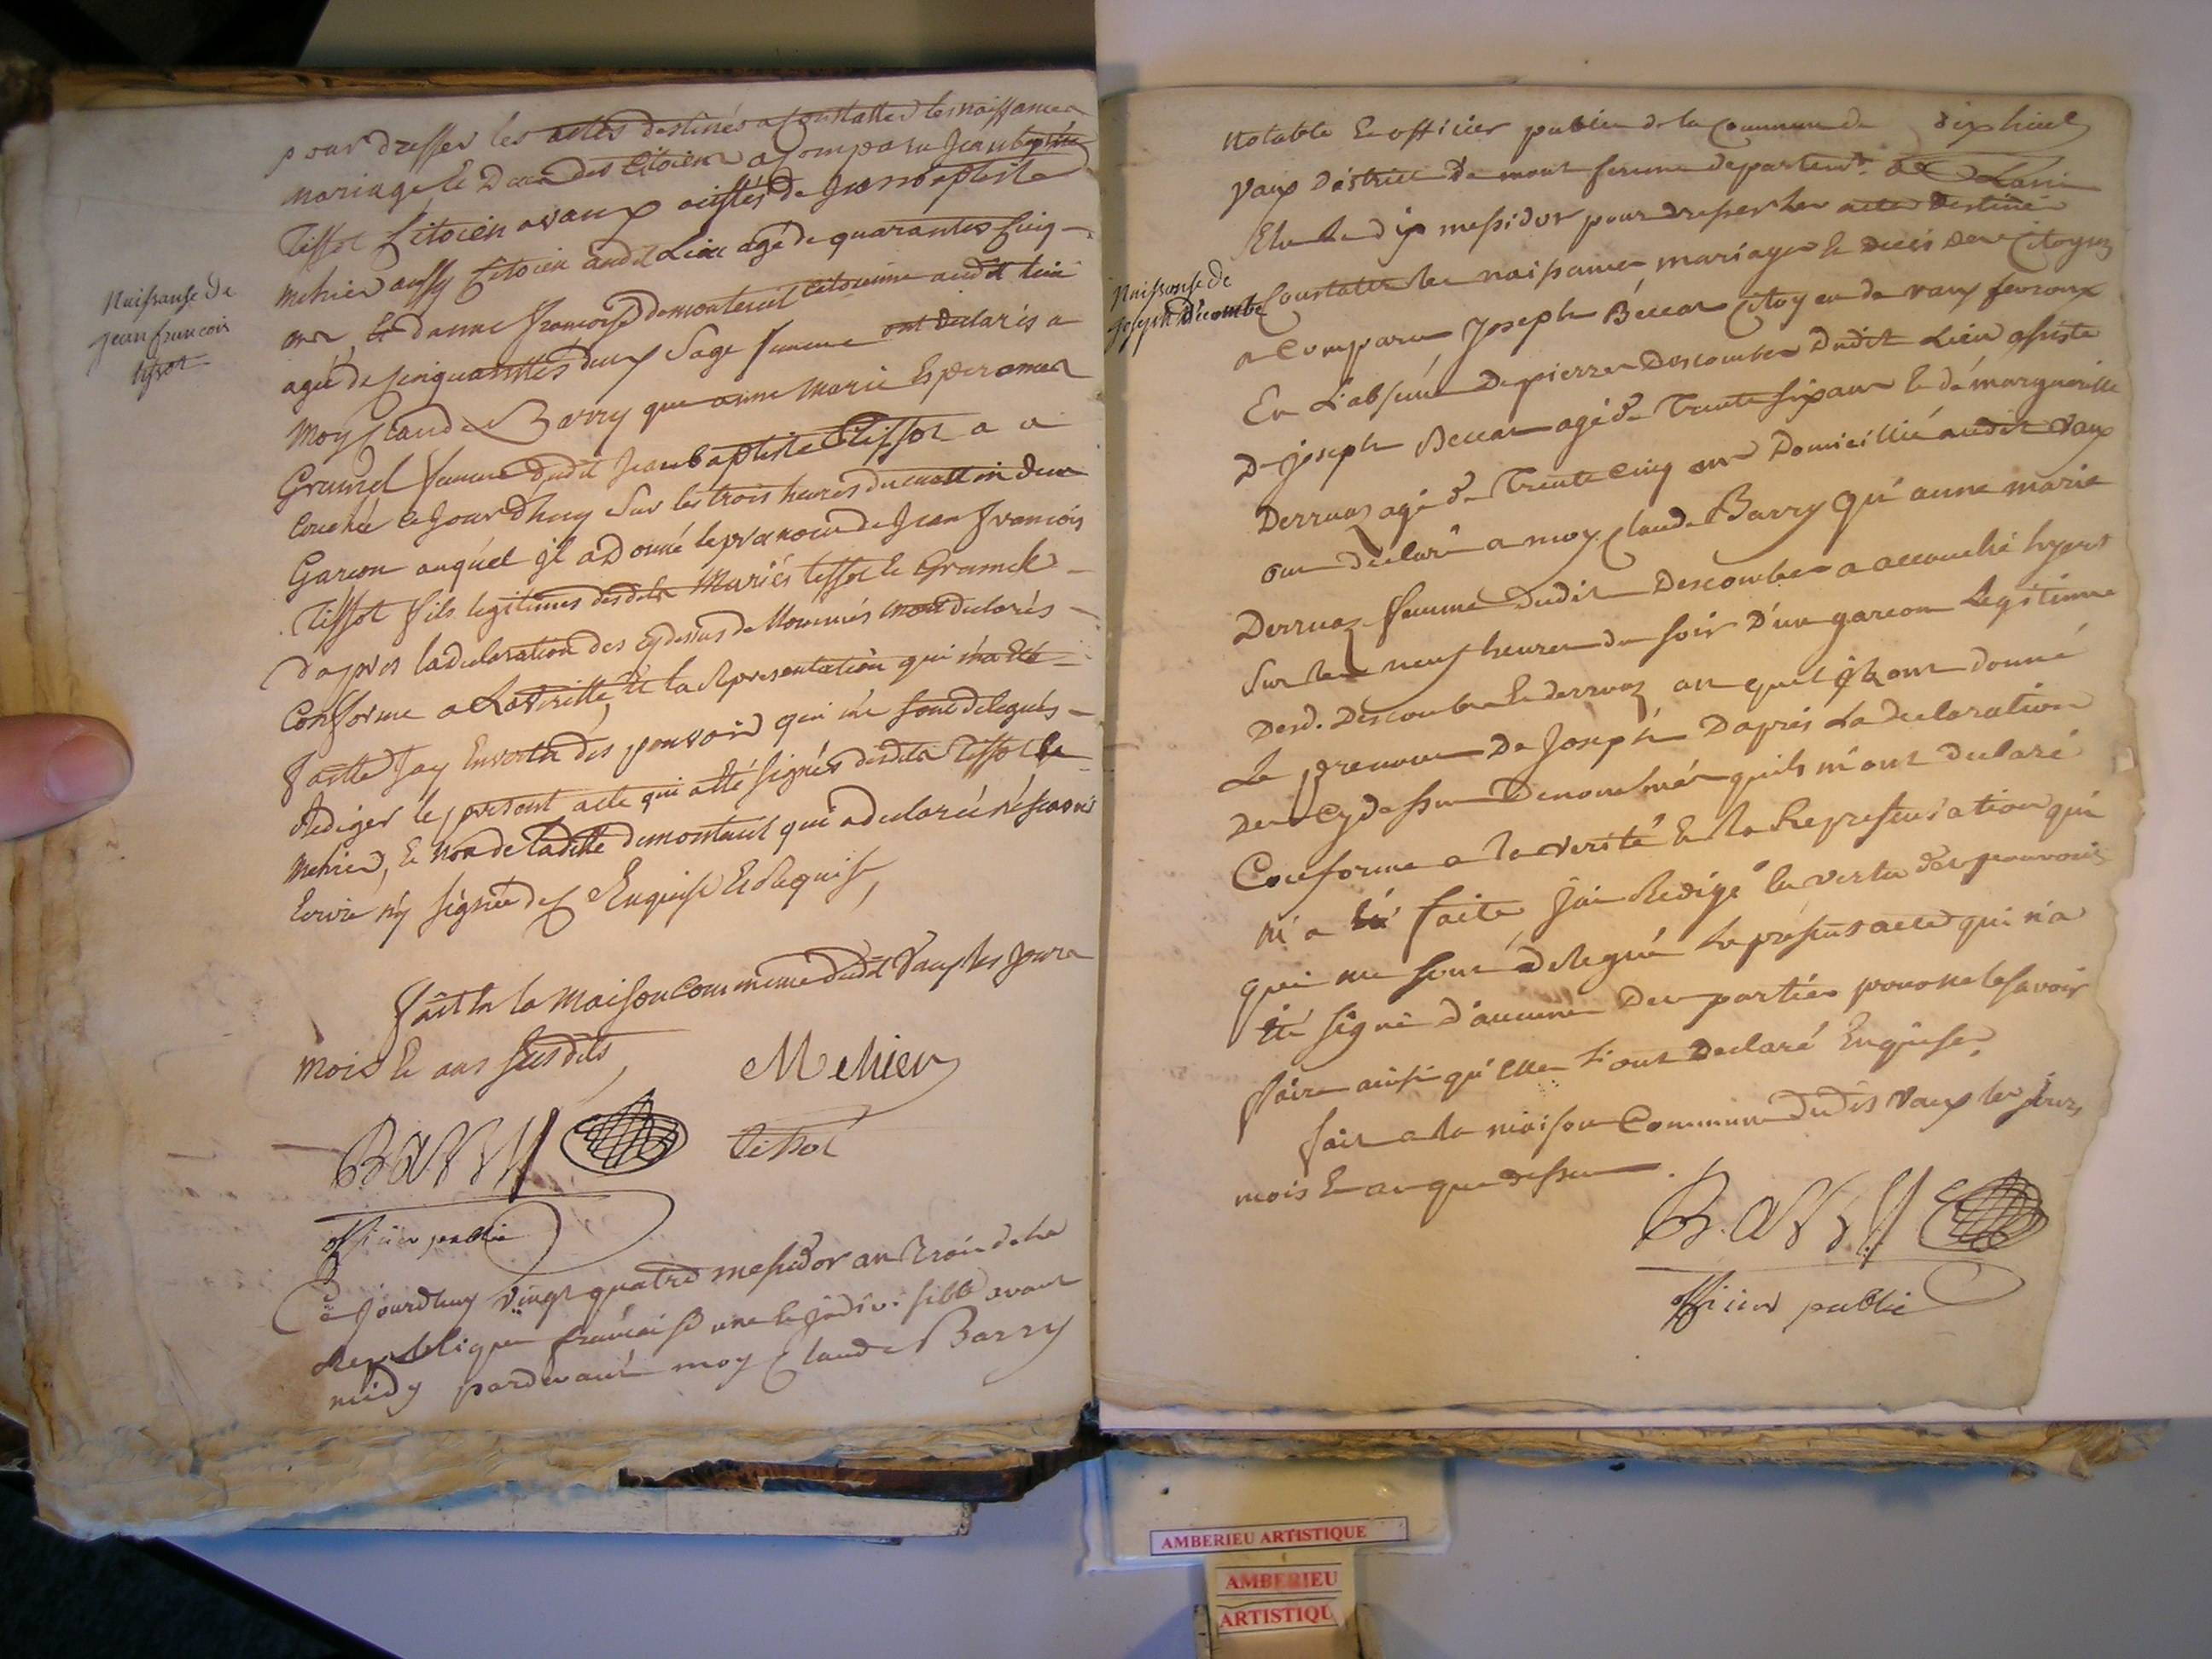 Naissanse de
jean francois
tissot
pour dresser les actes destinés a Constatter les naissances
mariage et Deces des Citoiens a Comparu Jean baptiste
Tissot Citoien a vaux assistés de Jean baptiste
mehier aussy Citoien audit Lieu agé de quarantes Cinq
ans, Et danne francoise demonterent citoienne audit lieu
agée de Cinquanttes deux Sage femme ont declarés a
Moy Claude Barry que anne Marie Esperance
Grumel femme dudit Jean baptiste Tissot a a
Couchée ce Jourdhuy Sur les trois heures du mattin dun
Garcon auquel Jl a Donné le prenom de Jean francois
Tissot fils legitimes desdits Mariés tissot et Grumel
dapres la declaration des Cydessus de Nommés mont declarés
Conforme a La veritté, et la Representation qui ma été
faitte Jay En vertu des pouvoir qui me sont delegués
Rediger le present acte qui a été signés desdits Tissot et
mehier, Et non de laditte demonterent qui a declarée ne scavoir
Ecrire n'y signée de Enquise et Requise,
fait En la Maison Commune dudit Vaux les Jours
mois Et ans susdits
Mehier
Barry
tissot
officier public
Ce jourdhuy vingt quatre messidor an trois de la
Republique francaise une et jndivisible avant
midy pardevant moy Claude Barry
notable Et officier public de la Commune de dix huit
Vaux District de mont ferme departemt. de Lain
Elu le dix messidor pour dresser les actes destinés
Naissanse de
joseph Décombe
a Constater les naissances mariages et deces des Citoyens
a Comparu Joseph Béccat Citoyen de vaux fevroux
En L'absence De pierre Descombes Dudit Lieu assisté
De Joseph Beccat agé de Trente six ans Et de margueritte
Derruaz agé de Trente cinq ans Domicillié audit vaux
ont declaré a moy Claude Barry qu'anne marie
Derruaz femme Dudit Descombes a accouché hyert
Sur les neuf heures du soir D'un garcon Legitime
Desd. Descombes et derruaz au quel ils ont donné
Le prenom De Joseph Dapres La declaration
Des Cydessus Denommés quils m'ont declaré
Conforme a la verité Et la Representation qui
m'a été faite J'ai Redigé En vertu des pouvoirs
qui me sont Delegué Le present acte qui n'a
été signé d'aucune Des parties pour ne le savoir
faire ainsi qu'elles l'ont Declaré Enquise,
fait a la maison Commune dudit Vaux les jours
mois Et an que dessus.
Barry
officier public
AMBERIEU ARTISTIQUE
AMBERIEU
ARTISTIQU